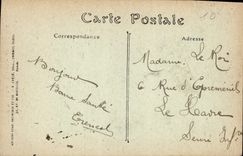 Carte Postale
10
Correspondance
Adresse
Bonjour
Bonne Santé
Ernest
Madame Le Roi
6 Rue d'Epremenil
Le Havre
Seine Inf